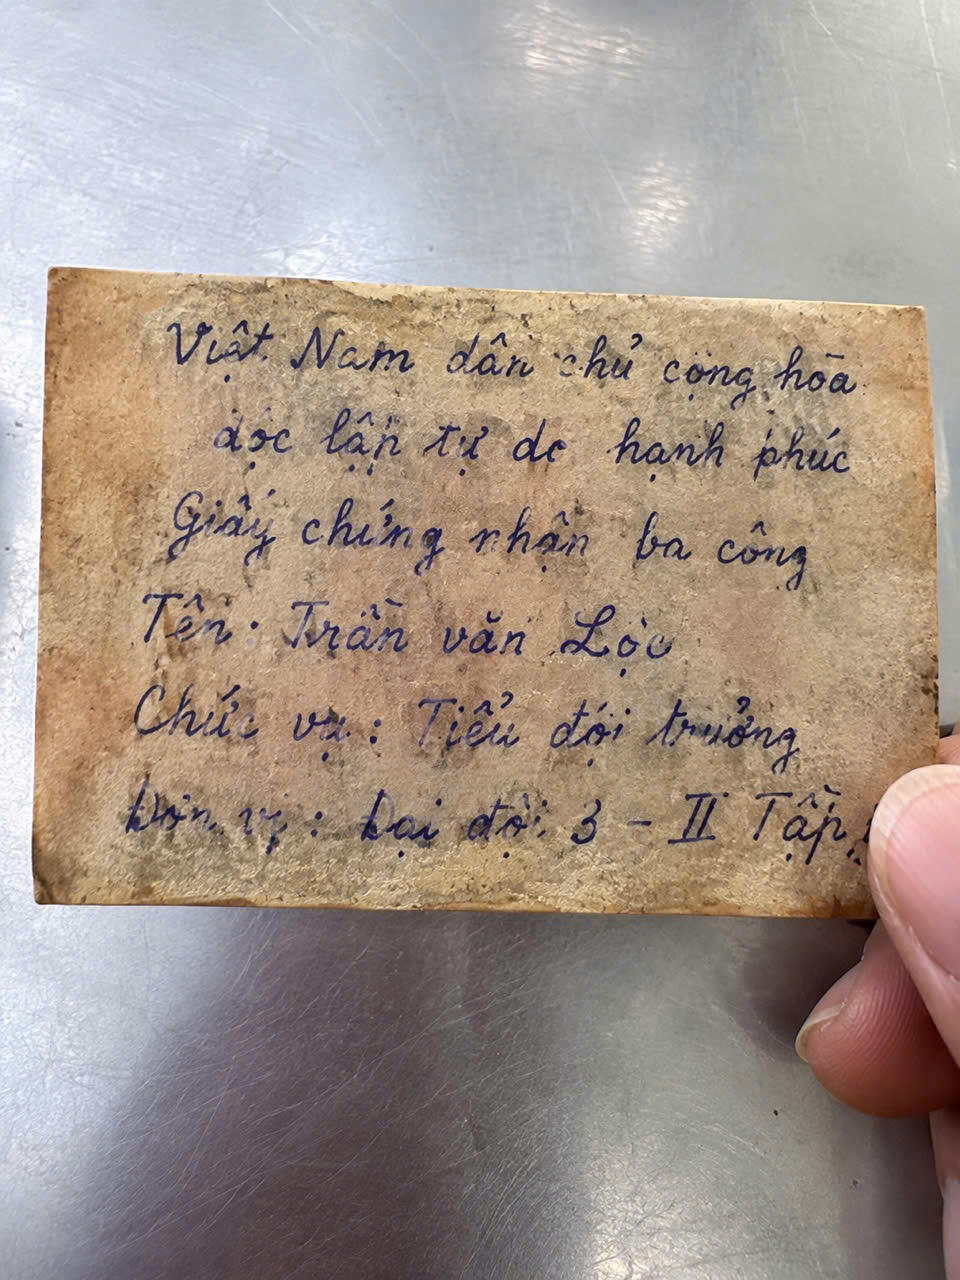 Việt Nam dân chủ cộng hòa
độc lập tự do hạnh phúc
Giấy chứng nhận ba công
Tên: Trần văn Lộc
Chức vụ: Tiểu đội trưởng
Đơn vị: Đại đội 3 - II Tập